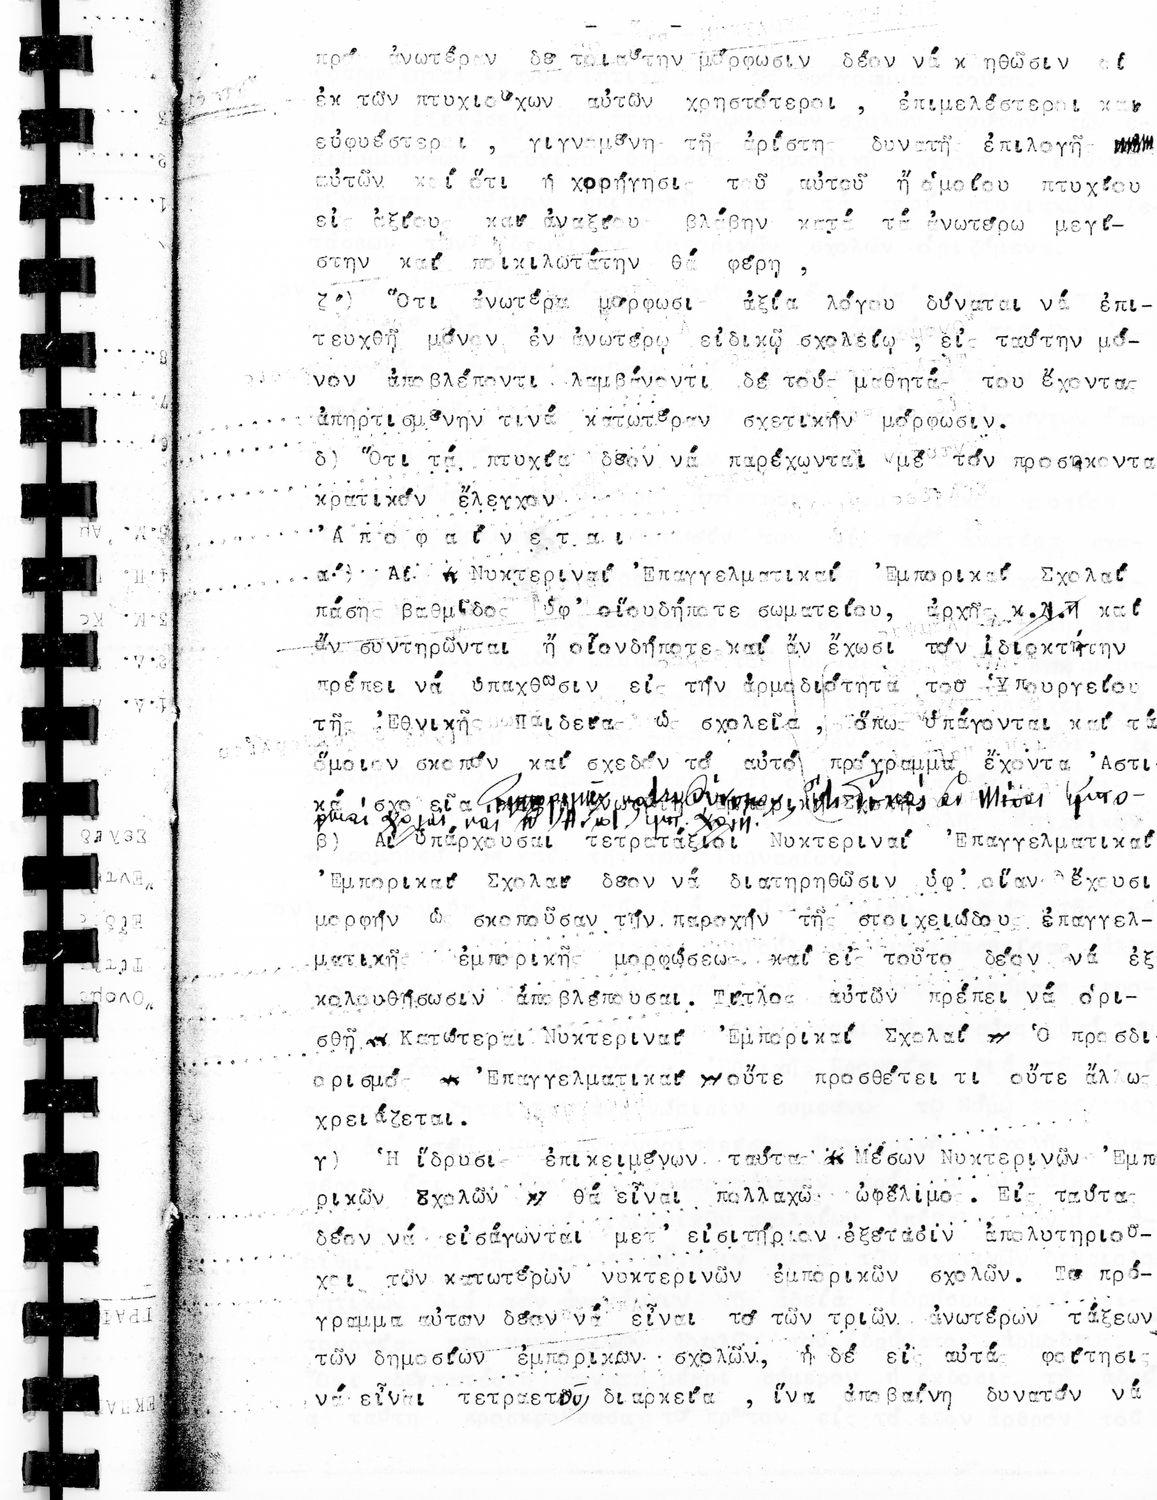 πρό ἀνωτέραν δέ τοιαύτην μόρφωσιν δέον νά κ ηθῶσιν οἱ
ἐκ τῶν πτυχιούχων αὐτῶν χρηστότεροι , ἐπιμελέστεροι καί
εὐφυέστερ ι , γιγνομένης τῆς ἀρίστης δυνατῆς ἐπιλογῆς
αὐτῶν καί ὅτι ἡ χορήγησις τοῦ αὐτοῦ ἤ ὁμοίου πτυχίου
εἰς ἀξίους καί ἀναξίους βλάβην κατά τά ἀνωτέρω μεγί-
στην καί ποικιλωτάτην θά φέρῃ ,
ζ') Ὅτι ἀνωτέρα μόρφωσις ἀξία λόγου δύναται νά ἐπι-
τευχθῇ μόνον ἐν ἀνωτέρῳ εἰδικῷ σχολείῳ , εἰς ταύτην μό-
νον ἀποβλέποντι λαμβάνοντι δέ τούς μαθητάς του ἔχοντας
ἀπηρτισμένην τινά κατωτέραν σχετικήν μόρφωσιν.
δ) Ὅτι τά πτυχία δέον νά παρέχωνται μέ τόν προσήκοντα
κρατικόν ἔλεγχον
Ἀ π ο φ α ί ν ε τ α ι
α') Αἱ Νυκτεριναί Ἐπαγγελματικαί Ἐμπορικαί Σχολαί
πάσης βαθμῖδος ὑφ' οἱουδήποτε σωματείου, ἀρχῆς κ.λ.π καί
ἄν συντηρῶνται ἤ οἱονδήποτε καί ἄν ἔχωσι τόν ἰδιοκτήτην
πρέπει νά ὑπαχθῶσιν εἰς τήν ἁρμοδιότητα τοῦ Ὑπουργείου
τῆς Ἐθνικῆς Παιδείας ὡς σχολεῖα , ὅπως ὑπάγονται καί τά
ὅμοιον σκοπόν καί σχεδόν τό αὐτό πρόγραμμα ἔχοντα Ἀστι-
κά σχο εῖα καί αἱ Μέσαι Ἐμπο-
ρικαί Σχολαί καί
β) Αἱ ὑπάρχουσαι τετρατάξιοι Νυκτεριναί Ἐπαγγελματικαί
Ἐμπορικαί Σχολαί δέον νά διατηρηθῶσιν ὑφ' οἵαν ἔχουσι
μορφήν ὡς σκοποῦσαν τήν παροχήν τῆς στοιχειώδους ἐπαγγελ-
ματικῆς ἐμπορικῆς μορφώσεως καί εἰς τοῦτο δέον νά ἐξ
κολουθήσωσιν ἀποβλέπουσαι. Τίτλος αὐτῶν πρέπει νά ὁρι-
σθῇ " Κατώτεραι Νυκτεριναί Ἐμπορικαί Σχολαί " Ὁ προσδι-
ορισμός " Ἐπαγγελματικαί " οὔτε προσθέτει τι οὔτε ἄλλως
χρειάζεται.
γ) Ἡ ἵδρυσις ἐπικειμένων ταύταις " Μέσων Νυκτερινῶν Ἐμπ
ρικῶν Σχολῶν " θά εἶναι πολλαχῶς ὠφέλιμος. Εἰς ταύτας
δέον νά εἰσάγωνται μετ' εἰσιτήριον ἐξέτασιν ἀπολυτηριοῦ-
χοι τῶν κατωτέρων νυκτερινῶν ἐμπορικῶν σχολῶν. Τό πρό-
γραμμα αὐτῶν δέον νά εἶναι τό τῶν τριῶν ἀνωτέρων τάξεων
τῶν δημοσίων ἐμπορικῶν σχολῶν, ἡ δέ εἰς αὐτάς φοίτησις
νά εἶναι τετραετοῦς διαρκείας , ἵνα ἀποβαίνῃ δυνατόν νά